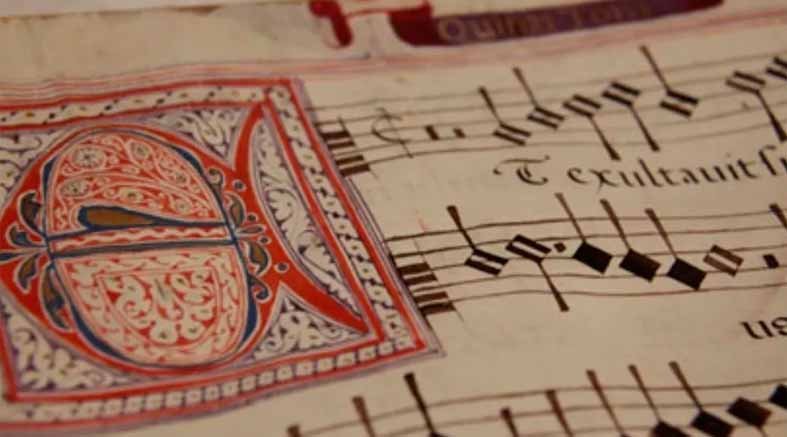 Quinti Toni
ET exultauit
us